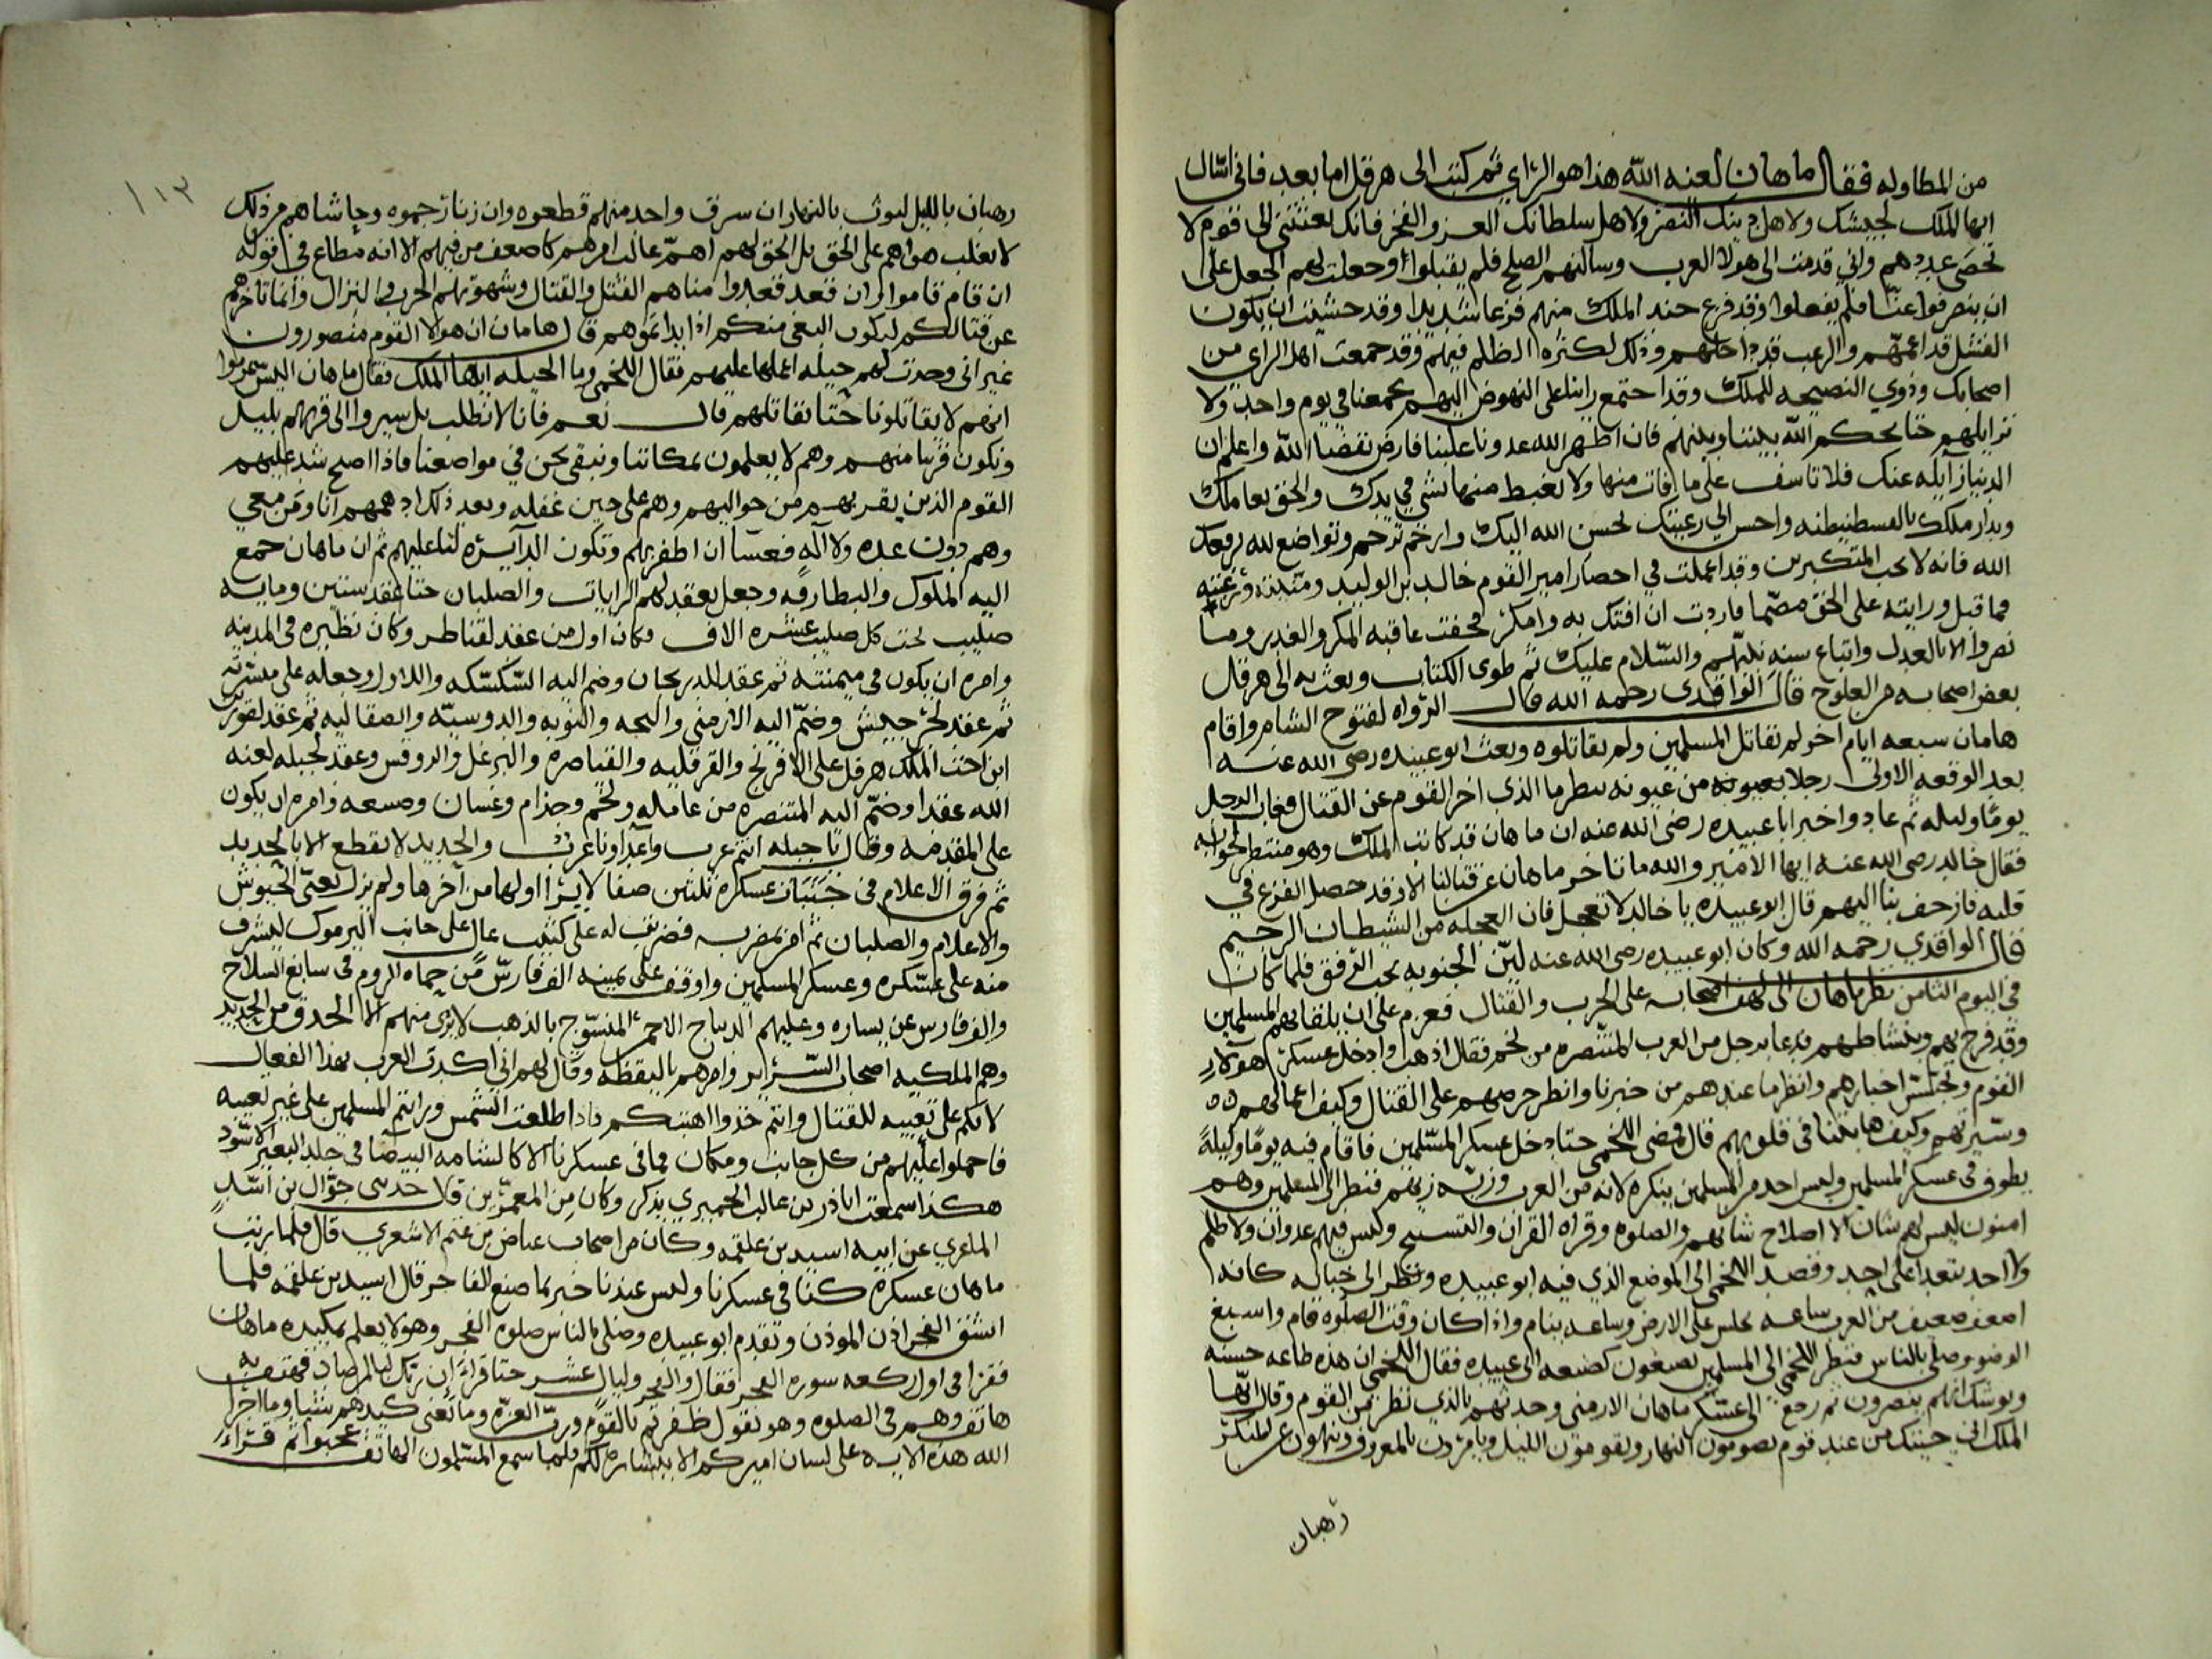 من المطاوله فقال ماهان لعنه الله هذا هو الراي ثم كتب الى هرقل اما بعد فاني اسال
ايها الملك لجيشك ولاهل دينك النصر ولاهل سلطانك العز والفخر فانك بعثتني الى قوم لا
تحصى عددهم واني قدمت الى هولا العرب وسالتهم الصلح فلم يقبلوا وجعلت لهم الجعل على
ان ينصرفوا عنا فلم يفعلوا وقد فزع جند الملك منهم فزعا شديدا وقد خشيت ان يكون
الفشل قد اعمهم والرعب قد داخلهم وذلك لكثره الظلم فيهم وقد جمعت اهل الراي من
اصحابك وذوي النصيحه للملك وقد اجتمع راينا على النهوض اليهم بجمعنا في يوم واحد ولا
نزايلهم حتا يحكم الله بيننا وبينهم فان اظهر الله عدونا علينا فارض بقضا الله واعلم ان
الدنيا زايله عنك فلا تاسف على ما فات منها ولا تغبط منها بشي في يدك والحق بعاملك
وبدار ملكك بالقسطنيطنه واحسن الى رعيتك لحسن الله اليك وارحم ترحم وتواضع لله يرفعك
الله فانه لا يحب المتكبرين وقد اعملت في احضار امير القوم خالد بن الوليد ومنيته ورغبته
فما قبل ورايته على الحق مصمما فاردت ان افتك به وامكر فخفت عاقبه المكر والغدر وما
نصروا الا بالعدل واتباع سنه نبيهم والسلام عليك ثم طوى الكتاب وبعث به الى هرقل
بعض اصحابه من العلوج قال الواقدي رحمه الله قال الرواه لفتوح الشام واقام
هامان سبعه ايام اخر لم نقاتل المسلمين ولم يقاتلوه وبعث ابو عبيده رضي الله عنه
بعد الوقعه الاولى رجلا من عيونه ينظر ما الذي اخر القوم عن القتال فغاب الرجل
يوما وليله ثم عاد واخبر ابا عبيده رضي الله عنه ان ماهان قد كاتب الملك وهو منتظر لجوابه
فقال خالد رضي الله عنه ايها الامير والله ما تاخر ماهان عن قتالنا الا وقد حصل الفزع في
قلبه فازحف بنا اليهم قال ابو عبيده يا خالد لا تعجل فان العجله من الشيطان الرجيم
قال الواقدي رحمه الله وكان ابو عبيده رضي الله عنه لين الجنوبه يحب الرفق فلما كان
في اليوم الثامن نظر ماهان الى لهف اصحابه على الحرب والقتال فعزم على ان يلقا بهم المسلمين
وقد فرح بهم وبنشاطهم فدعا برجل من العرب المتنصره من لخم فقال اذهب وادخل عسكر هولاء
القوم وتجسس اخبارهم وانظر ما عندهم من خبرنا وانظر حرصهم على القتال وكيف اعمالهم
وسيرتهم وكيف هابتنا في قلوبهم قال فمضى اللخمي حتا دخل عسكر المسلمين فاقام فيه يوما وليلة
يطوف في عسكر المسلمين وليس احد من المسلمين ينكره لانه من العرب وزيه زيهم فنظر الى المسلمين وهم
امنون ليس لهم شان الا اصلاح شانهم والصلوه وقراه القران والتسبيح وليس فيهم عدوان ولا ظلم
ولا احد يتعدا على احد وقصد اللخمي الى الموضع الذي فيه ابو عبيده ونظر الى خباله كانه
اضعف ضعيف من العرب ساعه يجلس على الارض وساعه ينام واذا كان وقت الصلوه قام واسبغ
الوضو وصلى بالناس فنظر اللخمي الى المسلمين يصنعون كصنعه الى عبيده فقال اللخمي ان هذه طاعه حسنه
ويوشك انهم ينصرون ثم رجع الى عسكر ماهان الارمني وحدثهم بالذي نظر من القوم وقال ايها
الملك اني جيتك من عند قوم يصومون النهار ويقومون الليل ويامرون بالمعروف وينهون عن المنكر
رهبان
١١٣
رهبان بالليل ليوث بالنهار ان سرق واحد منهم قطعوه وان زنا رجموه وحاشاهم من ذلك
لا يغلب هواهم على الحق بل الحق لهم اهم غالب اميرهم كاضعف من فيهم الا انه مطاع في قوله
ان قام قاموا وان قعد قعدوا مناهم القتل والقتال وشهوتهم الحرب والنزال وانما تاخرهم
عن قتالكم ليكون البغي منكم اذا بداتموهم قال هامان ان هولا القوم منصورون
غير اني وجدت لهم حيله اعملها عليهم فقال اللخمي وما الحيله ايها الملك فقال ماهان اليس
انهم لا يقاتلونا حتا نقاتلهم قال نعم فانا لا نطلب بل سيروا الى قربهم بليل
ونكون قريبا منهم وهم لا يعلمون بمكاننا ونبقى نحن في مواضعنا فاذا اصبح شد عليهم
القوم الذين يقربهم من حواليهم وهم على حين غفله وبعد ذلك ادهمهم انا ومن معي
وهم دون عده ولا آله فعسا ان اظفر بهم وتكون الدايره لنا عليهم ثم ان ماهان جمع
اليه الملوك والبطارقه وجعل يعقد لهم الرايات والصلبان حتا عقد ستين ومايه
صليب تحت كل صليب عشره الاف وكان اول من عقد لقناطر وكان نظيره في المدينه
وامره ان يكون في ميمنته ثم عقد للديرجان وضم اليه السكسكه واللاول وجعله على ميسرته
ثم عقد لجرجيش وضم اليه الارمني والبجه والنوبه والدوسيه والصقاليه ثم عقد لقورين
ابن اخت الملك هرقل على الافرنج والقرقليه والقناصره والبرغل والروقس وعقد لجبله لعنه
الله عقدا وضم اليه المتنصره من عامله ولخم وجذام وغسان وضبيعه وامره ان يكون
على المقدمه وقال يا جبله انتم عرب واعداونا عرب والحديد لا يقطع الا بالحديد
ثم فرق الاعلام في جنبان عسكره ثلثين صفا لا يرا اولها من آخرها ولم يزل يعبى الجيوش
والاعلام والصلبان ثم امر بمضربه فضربت له على كثيب عال على جانب اليرموك ليشرف
منه على عسكره وعسكر المسلمين واوقف على يمينه الف فارس من حماه الروم في سابغ السلاح
والف فارس عن يساره وعليهم الديباج الاحمر المنسوج بالذهب لا يرى منهم الا الحدق من الحديد
وهم الملكيه اصحاب السراير وامرهم باليقظه وقال لهم اني اكبدت العرب بهذا الفعال
لانكم على تعبيه للقتال وانتم خذوا اهبتكم فاذا طلعت الشمس ورايتم المسلمين على غير تعبيه
فاحملوا عليهم من كل جانب ومكان فما في عسكرنا الا كالشامه البيضا في جلد البعير الاسود
هكذا سمعت اباذر بن غالب الحميري يذكر وكان من المعمرين قال حدثني جوال بن اسد
عن ابيه اسيد بن علقمه وكان من اصحاب عياض بن غنم الاشعري قال فلما رتب
ماهان عسكره كنا في عسكرنا وليس عندنا خبر بما صنع الفاجر قال اسيد بن علقمه فلما
انشق الفجر اذن الموذن وتقدم ابو عبيده وصلى بالناس صلوه الفجر وهو لا يعلم بمكيده ماهان
فقرا في اول ركعه سوره الفجر فقال والفجر وليال عشر حتا قراء ان ربك لبالمرصاد فهتف به
هاتف وهم في الصلوه وهو يقول ظفرتم بالقوم ورب العزه وما يغني كيدهم شيئا وما اجرا
الله هذه الايه على لسان اميركم الا بشاره لكم فلما سمع المسلمون الهاتف عجبوا ثم قراء